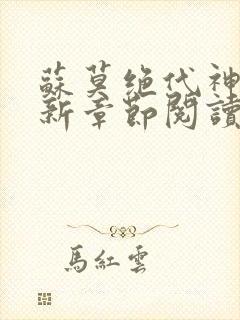 蘇莫绝代神
新章節閱讀
馬紅雲